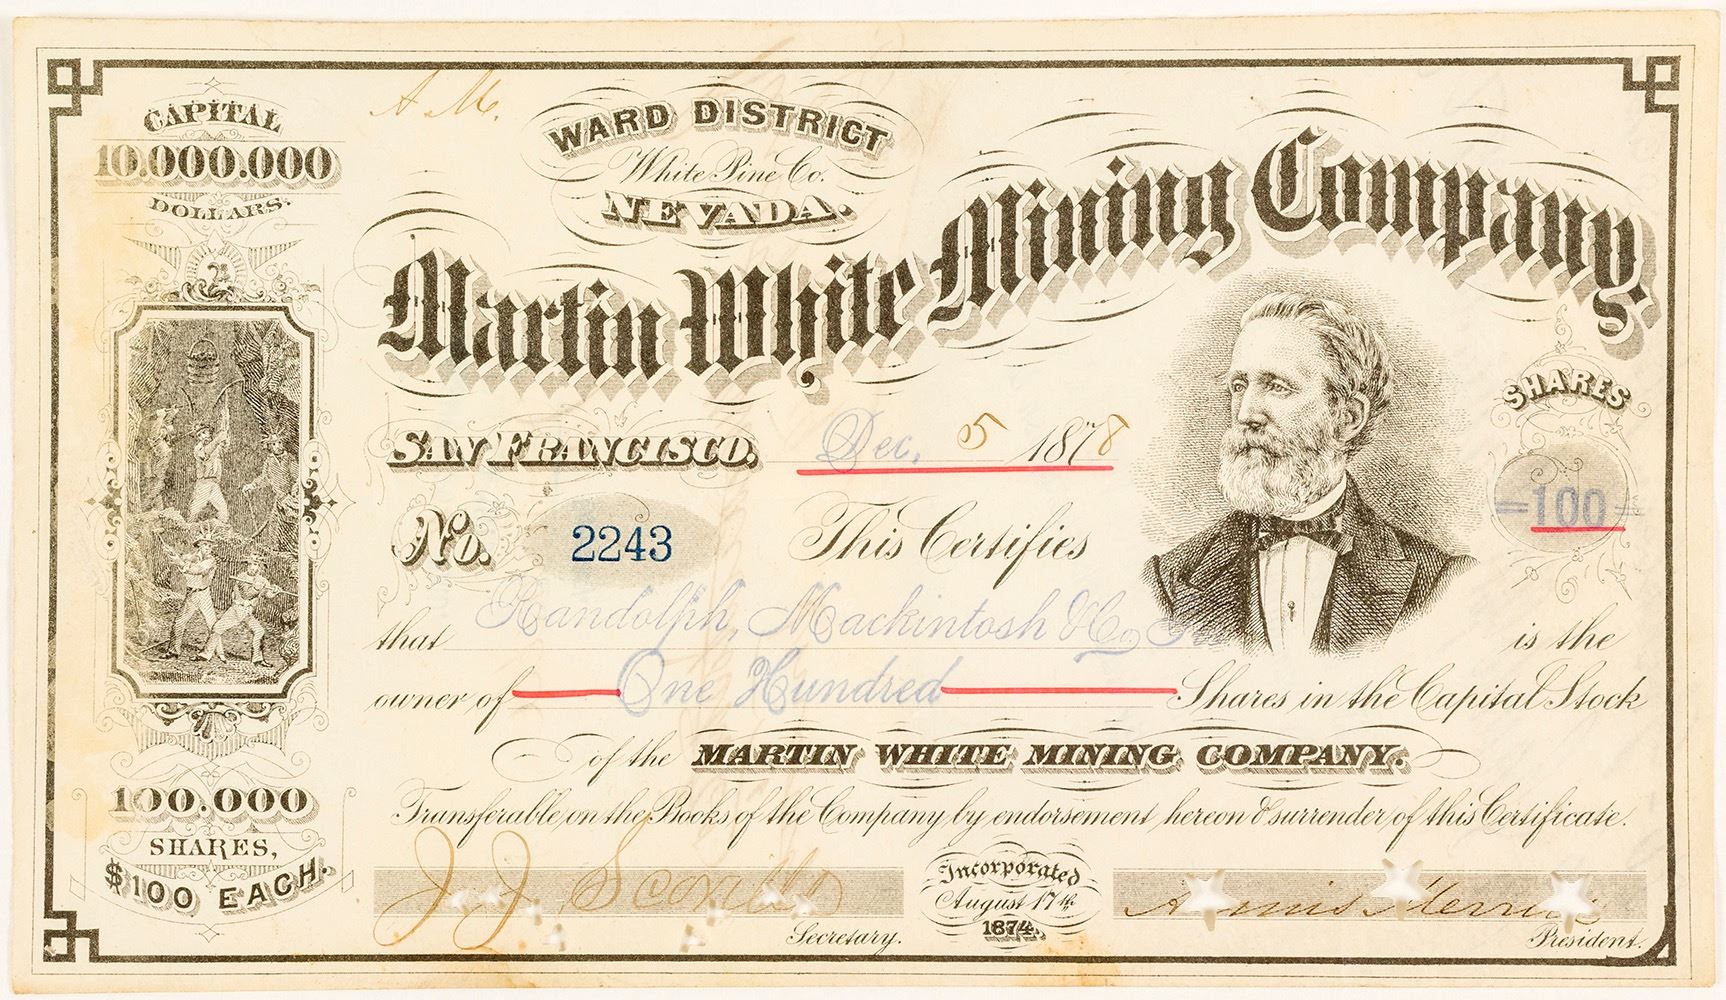 CAPITAL
10.000.000
DOLLARS.
A M.
WARD DISTRICT
White Pine Co.
NEVADA.
Martin White Mining Company
SAN FRANCISCO, Dec. 5 1878
SHARES
=100=
No. 2243 This Certifies
that Randolph, Mackintosh & Co is the
owner of One Hundred Shares in the Capital Stock
of the MARTIN WHITE MINING COMPANY.
Transferable on the Books of the Company by endorsement hereon & surrender of this Certificate.
100.000
SHARES,
$100 EACH.
J. J. Scoville
Secretary.
Incorporated
August 17th
1874.
President.